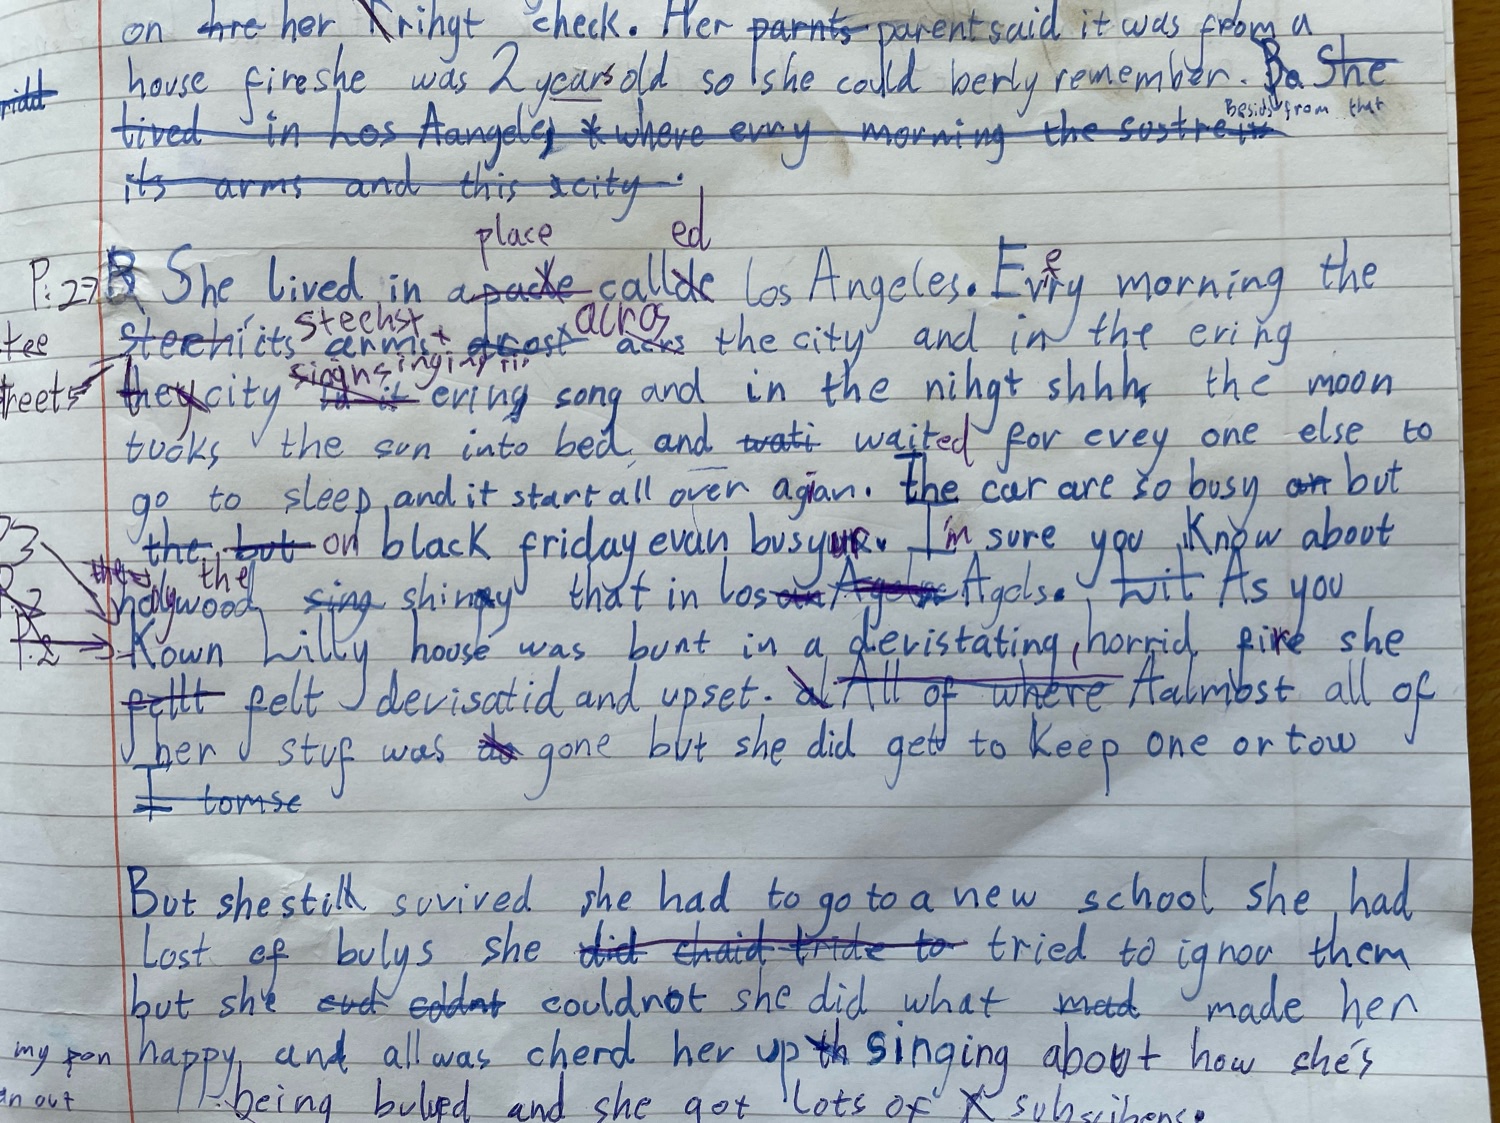 on hre her rihgt check. Her parnts parent said it was from a
house fire she was 2 years old so she could berly remember. Be She
Besids from that
lived in Los Aangeles where evry morning the
its arms and this city.
place ed
P. 27 She lived in a call Los Angeles. Evry morning the
steehst acros
its arms the city and in the ering
singns singing
treets they city ering song and in the nihgt shhh the moon
tucks the sun into bed and wati waited for evey one else to
go to sleep and it start all over agian. The car are so busy an but
the but on black friday evan busyur. I'm sure you Know about
the
holywood sing shinny that in Los Agels. Lit As you
P.2 Kown Lilly house was bunt in a devistating, horrid fire she
feltt felt devisatid and upset. All of where Aalmost all of
her stuf was gone but she did get to Keep one or tow
I tomse
But she still suvived she had to go to a new school she had
Lost of bulys she did chaid tride to tried to ignor them
but she cud coldnt couldnot she did what mad made her
my pen happy and all was cherd her up singing about how she's
an out being bulyed and she got lots of subscibens.